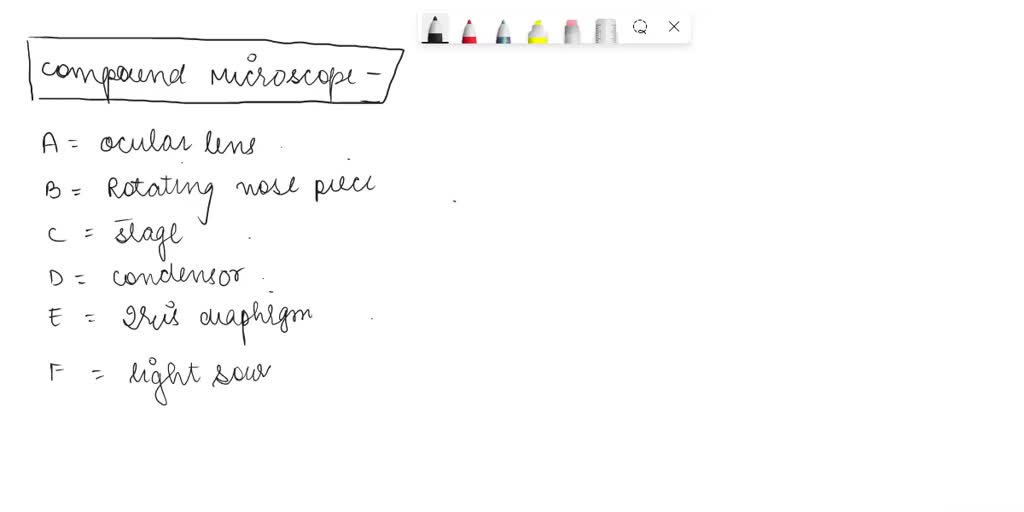 compound microscope -
A = ocular lens
B = Rotating nose piece
C = stage
D = condensor
E = Iris diaphragm
F = light sour